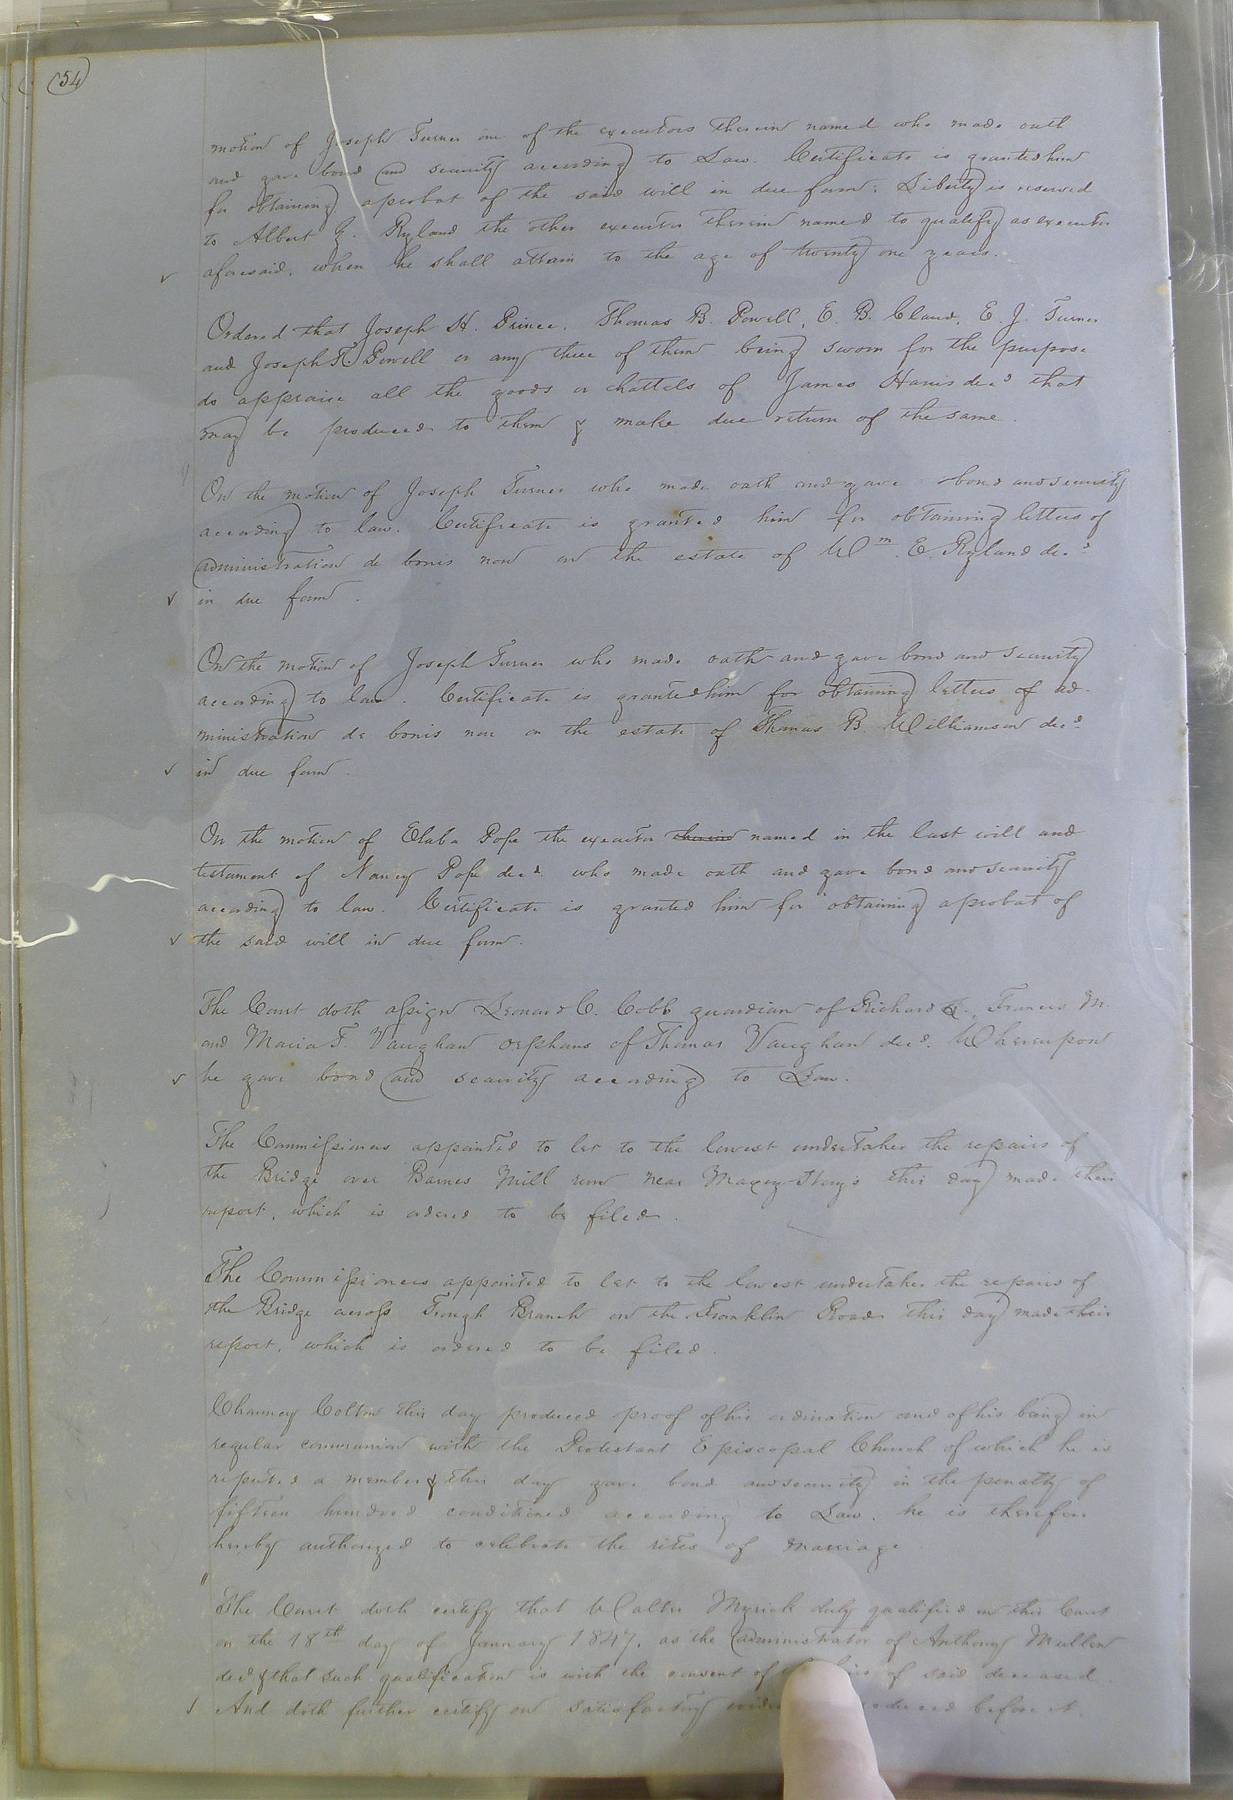 54
motion of Joseph Turner one of the executors therein named who made oath
and gave bond and security according to Law. Certificate is granted him
for obtaining a probat of the said will in due form. Liberty is reserved
to Albert G. Ryland the other executor therein named to qualify as executor
aforesaid, when he shall attain to the age of twenty one years.
Ordered that Joseph H. Prince, Thomas B. Powell, E. B. Claud, E. J. Turner
and Joseph Powell or any three of them being sworn for the purpose
do appraise all the goods or chattels of James Harris decd that
may be produced to them & make due return of the same.
On the motion of Joseph Turner who made oath and gave bond and security
according to law. Certificate is granted him for obtaining letters of
administration de bonis non on the estate of Wm. E. Ryland decd
in due form.
On the motion of Joseph Turner who made oath and gave bond and security
according to law. Certificate is granted him for obtaining letters of ad-
ministration de bonis non on the estate of Thomas B. Williamson decd
in due form.
On the motion of Pope the executor therein named in the last will and
testament of Nancy Pope decd who made oath and gave bond and security
according to law. Certificate is granted him for obtaining a probat of
the said will in due form.
The Court doth assign Leonard C. Cobb guardian of Richard Francis M.
and Maria F. Vaughan orphans of Thomas Vaughan decd. Whereupon
he gave bond and security according to Law.
The Commissioners appointed to let to the lowest undertaker the repairs of
the Bridge over Barnes Mill run near this day made their
report, which is orderd to be filed.
The Commissioners appointed to let to the lowest undertaker the repairs of
the Bridge across Branch on the Franklin Road this day made their
report, which is ordered to be filed.
Colton this day produced proof of his ordination and of his being in
regular communion with the Protestant Episcopal Church of which he is
reputed a member & this day gave bond and security in the penalty of
fifteen hundred conditioned according to Law. he is therefore
hereby authorized to celebrate the rites of marriage
The Court doth certify that Walter Myrick duly qualified in this Court
on the 18th day of January 1847, as the administrator of Anthony Mullen
decd & that such qualification is with the consent of of said deceased.
And doth further certify on satisfactory before it.